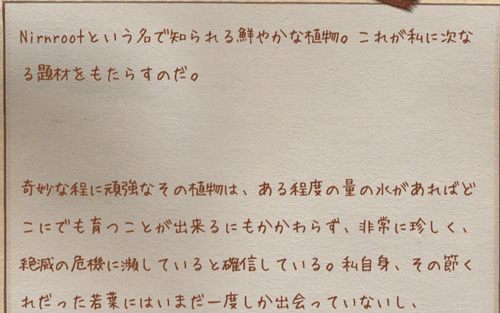 Nirnrootという名で知られる鮮やかな植物。これが私に次な
る題材をもたらすのだ。
奇妙な程に頑強なその植物は、ある程度の量の水があればど
こにでも育つことが出来るにもかかわらず、非常に珍しく、
絶滅の危機に瀕していると確信している。私自身、その節く
れだった若葉にはいまだ一度しか出会っていないし、